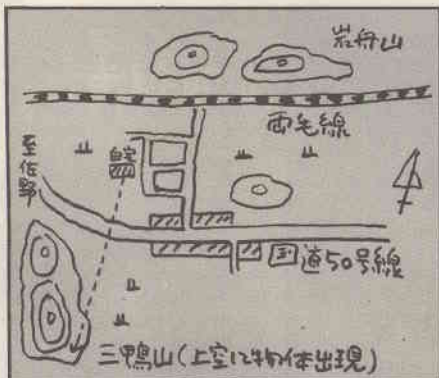 岩舟山
両毛線
至佐野
自宅
国道50号線
三鴨山(上空に物体出現)